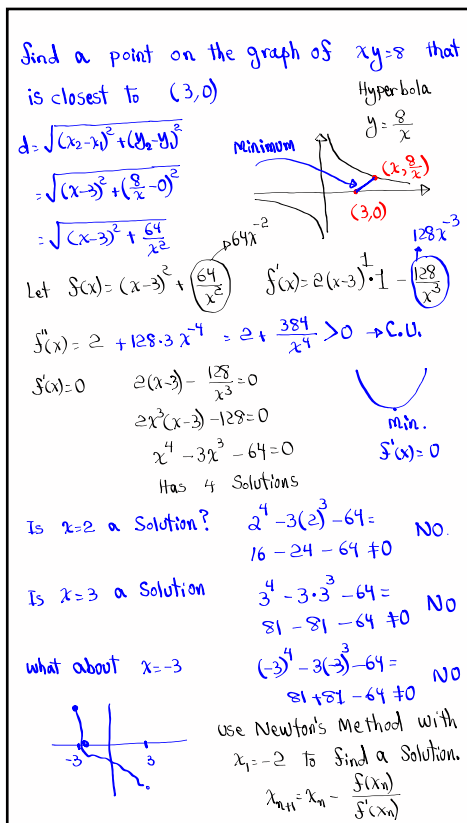 find a point on the graph of xy=8 that
is closest to (3,0)
Hyperbola
y = 8/x
d = √((x₂-x₁)² + (y₂-y₁)²)
Minimum
(x, 8/x)
= √((x-3)² + (8/x - 0)²)
(3,0)
= √((x-3)² + 64/x²)
64x⁻²
128x⁻³
Let f(x) = (x-3)² + 64/x²
f'(x) = 2(x-3)¹·1 - 128/x³
f''(x) = 2 + 128·3 x⁻⁴ = 2 + 384/x⁴ > 0 → C.U.
f'(x) = 0
2(x-3) - 128/x³ = 0
2x³(x-3) - 128 = 0
min.
x⁴ - 3x³ - 64 = 0
f'(x) = 0
Has 4 Solutions
Is x=2 a Solution?
2⁴ - 3(2)³ - 64 =
No.
16 - 24 - 64 ≠ 0
Is x=3 a Solution
3⁴ - 3·3³ - 64 =
No
81 - 81 - 64 ≠ 0
what about x=-3
(-3)⁴ - 3(-3)³ - 64 =
NO
81 + 81 - 64 ≠ 0
-3
3
use Newton's Method with
x₁ = -2 to find a Solution.
xₙ₊₁ = xₙ - f(xₙ)/f'(xₙ)